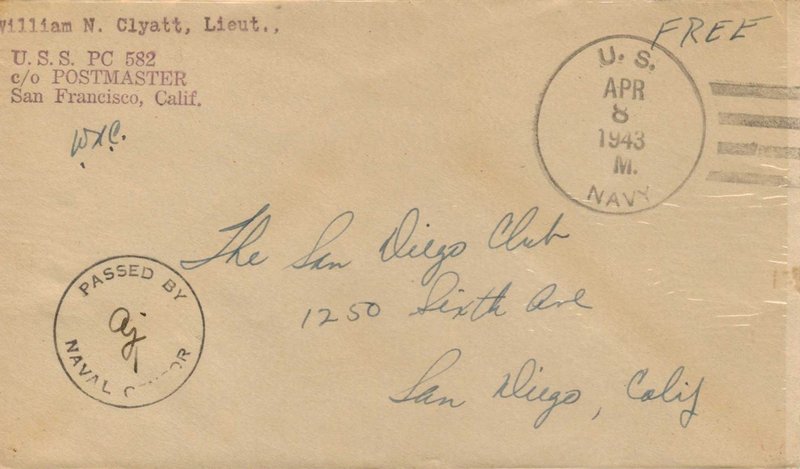 William N. Clyatt, Lieut.,
U. S. S. PC 582
c/o POSTMASTER
San Francisco, Calif.
FREE
U. S.
APR
8
1943
M.
NAVY
The San Diego Club
1250 Sixth Ave
San Diego, Calif
PASSED BY
NAVAL